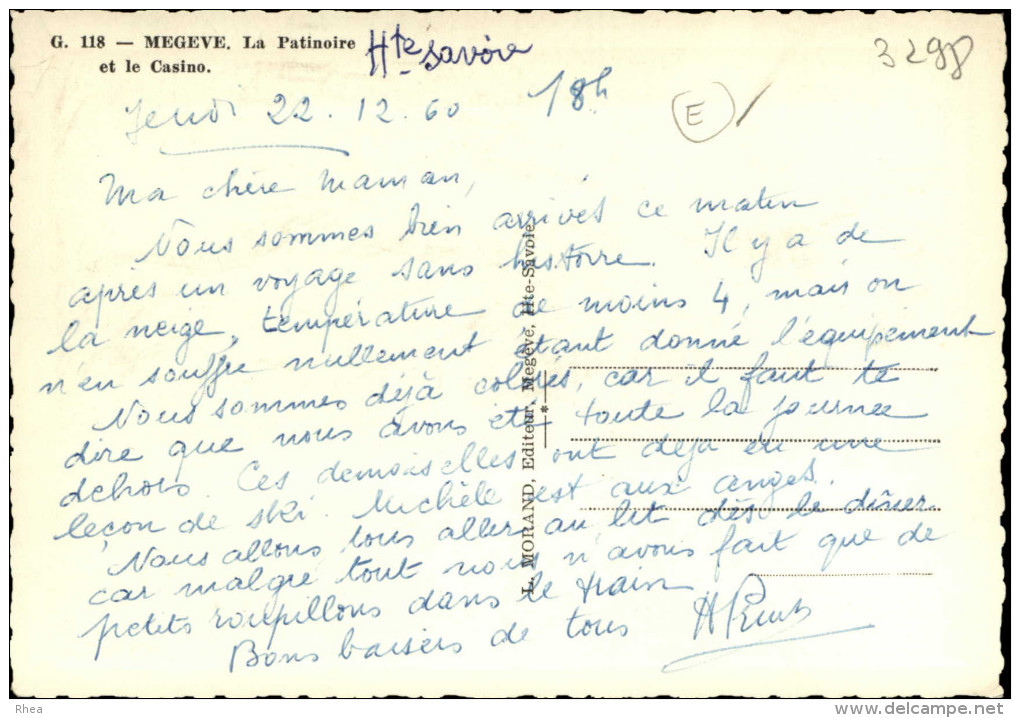 G. 118 — MEGEVE. La Patinoire
et le Casino.
Hte Savoie
3298
E
Jeudi 22.12.60 18h
Ma chère Maman,
Nous sommes bien arrivés ce matin
après un voyage sans histoire. Il y a de
la neige, température de moins 4, mais on
n'en souffre nullement étant donné l'équipement
Nous sommes déjà colorés, car il faut te
dire que nous avons été toute la journée
dehors. Ces demoiselles ont déjà eu une
leçon de ski. Michèle est aux anges.
Nous allons tous aller au lit dès le dîner
car malgré tout nous n'avons fait que de
petits roupillons dans le train
Bons baisers de tous
L. MORAND, Editeur, Megève, Hte-Savoie
Rhea
www.delcampe.net